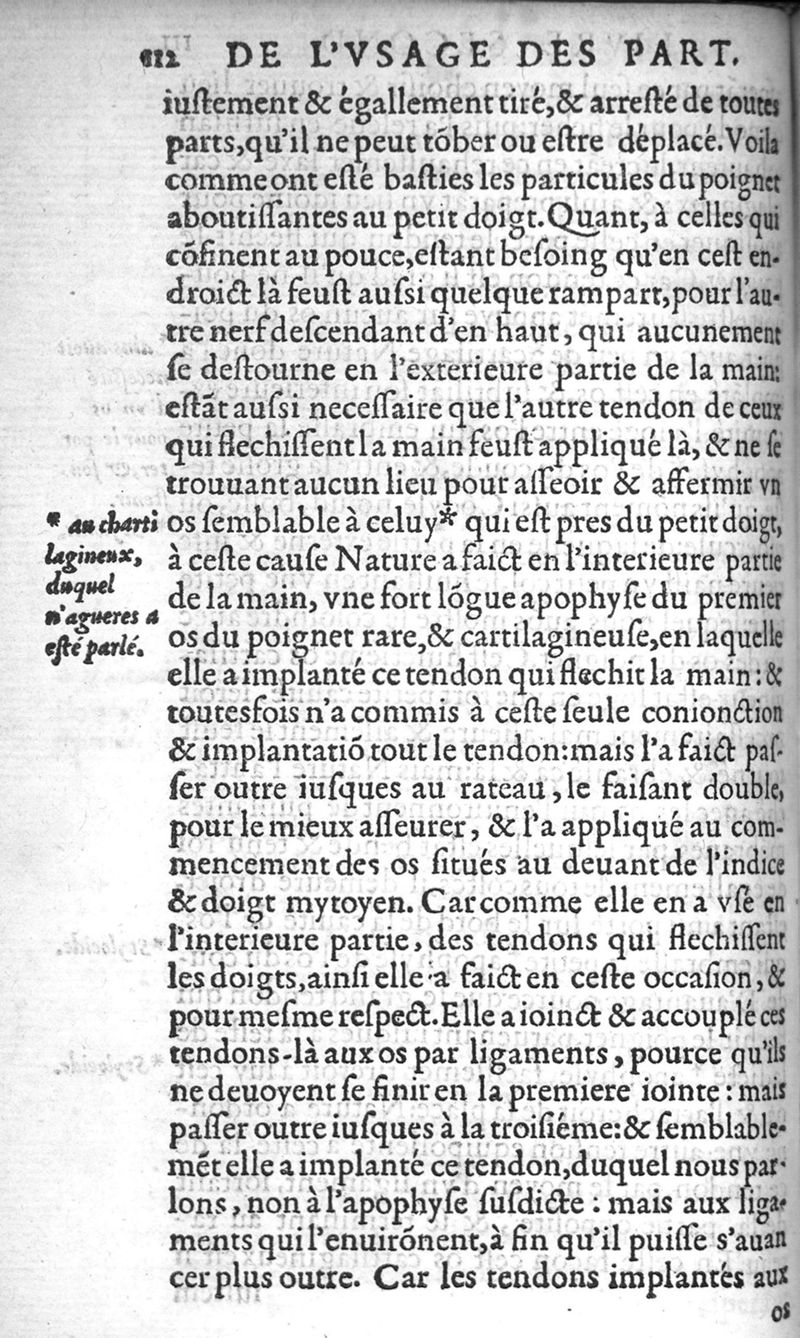 112 DE L'VSAGE DES PART.
iuſtement & égallement tiré,& arreſté de toutes
parts,qu'il ne peut tõber ou eſtre déplacé.Voila
comme ont eſté baſties les particules du poignet
aboutiſſantes au petit doigt.Quant, à celles qui
cõfinent au pouce,eſtant beſoing qu'en ceſt en-
droict là feuſt auſsi quelque rampart,pour l'au-
tre nerf deſcendant d'en haut, qui aucunement
ſe deſtourne en l'exterieure partie de la main:
eſtãt auſsi neceſſaire que l'autre tendon de ceux
qui flechiſſent la main feuſt appliqué là, & ne ſe
trouuant aucun lieu pour aſſeoir & affermir vn
os ſemblable à celuy* qui eſt pres du petit doigt,
à ceſte cauſe Nature a faict en l'interieure partie
de la main, vne fort lõgue apophyſe du premier
os du poignet rare,& cartilagineuſe,en laquelle
elle a implanté ce tendon qui flechit la main: &
toutesfois n'a commis à ceſte ſeule conionction
& implantatiõ tout le tendon:mais l'a faict paſ-
ſer outre iuſques au rateau, le faiſant double,
pour le mieux aſſeurer, & l'a appliqué au com-
mencement des os ſitués au deuant de l'indice
& doigt mytoyen. Car comme elle en a vſé en
l'interieure partie, des tendons qui flechiſſent
les doigts,ainſi elle a faict en ceſte occaſion, &
pour meſme reſpect.Elle a ioinct & accouplé ces
tendons-là aux os par ligaments, pource qu'ils
ne deuoyent ſe finir en la premiere iointe: mais
paſſer outre iuſques à la troiſiéme:& ſemblable-
mẽt elle a implanté ce tendon,duquel nous par-
lons, non à l'apophyſe ſuſdicte: mais aux liga-
ments qui l'enuirõnent,à fin qu'il puiſſe s'auan
cer plus outre. Car les tendons implantés aux
os
* au charti
lagineux,
duquel
n'agueres a
eſté parlé.